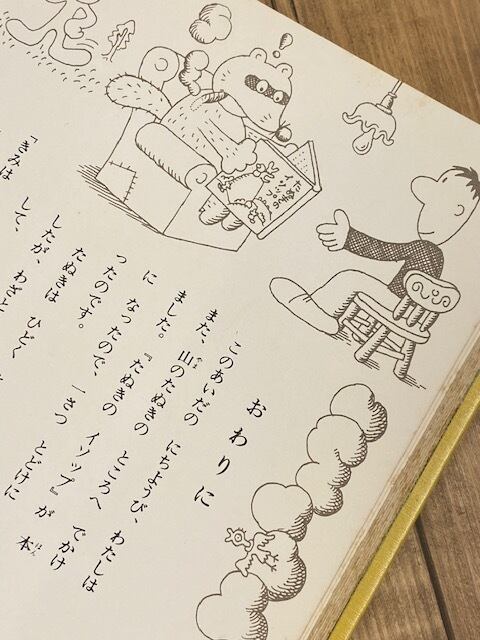 たぬきの
イソップ
おわりに
このあいだの にちようび、 わたしは
また、山のたぬきの ところへ でかけ
ました。『たぬきの イソップ』が 本
に なったので、 一さつ とどけに
ったのです。
たぬきは ひどく
したが、わざと
して、
「きみは